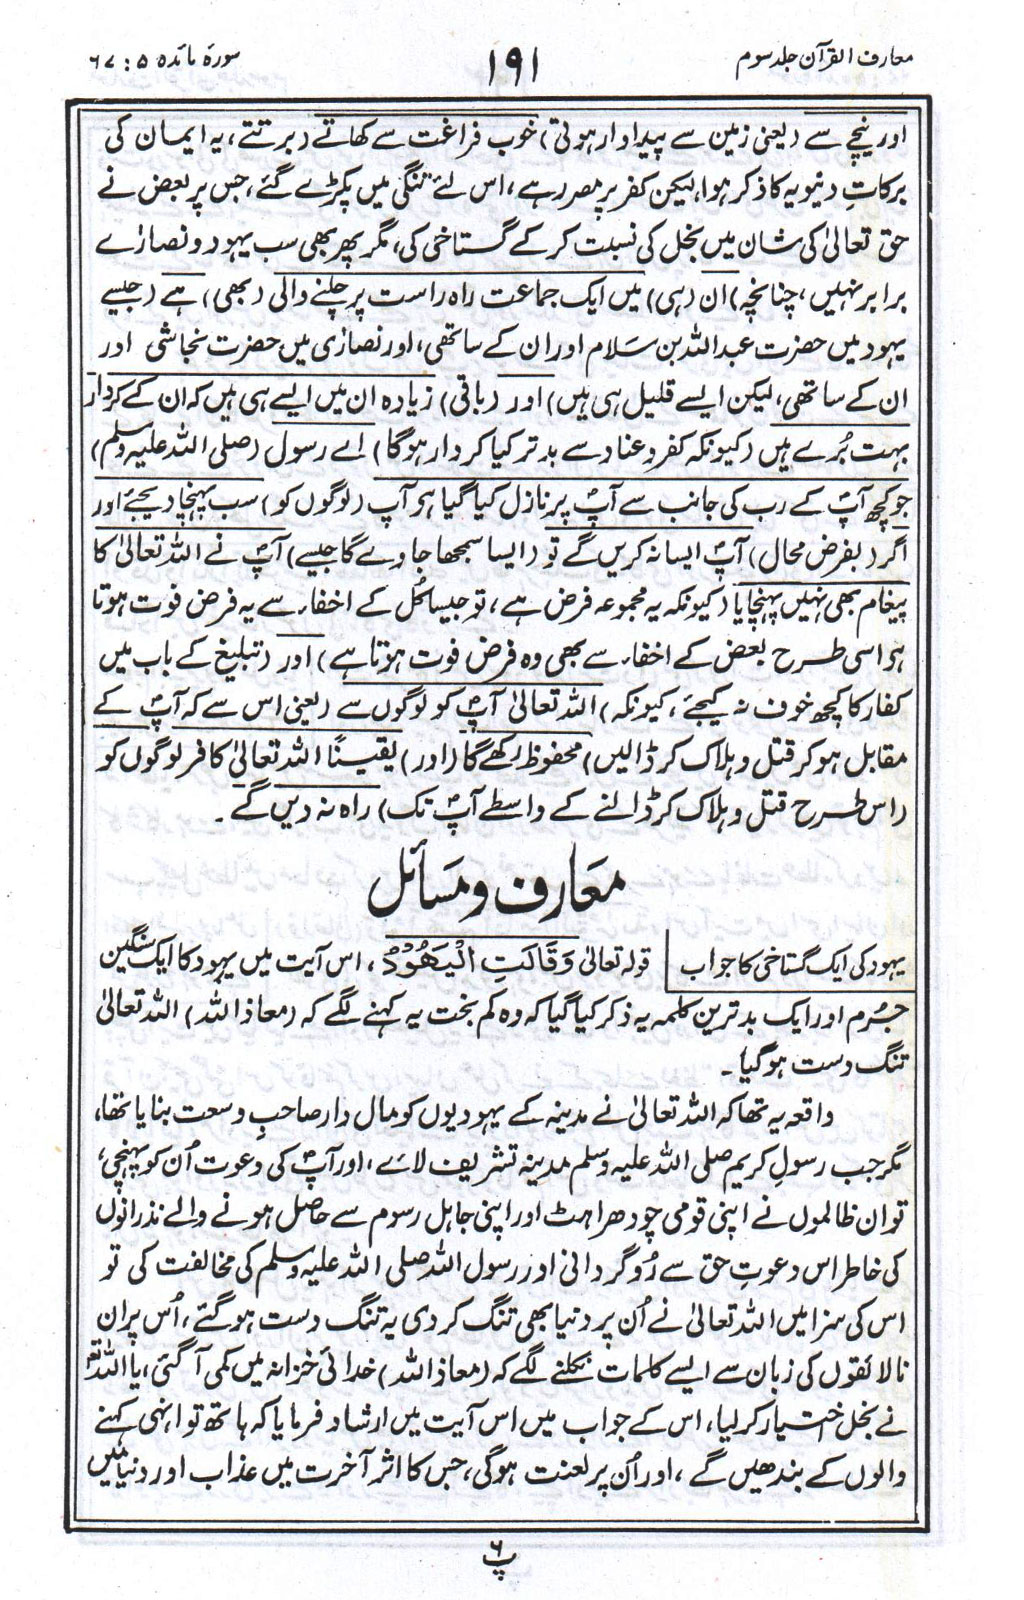 معارف القرآن جلد سوم
۱۹۱
سورۃ مائدہ ۵ : ۶۷
اور نیچے سے (یعنی زمین سے پیداوار ہوتی) خوب فراغت سے کھاتے (برتتے، یہ ایمان کی
برکاتِ دنیویہ کا ذکر ہوا، لیکن کفر پر مصر رہے، اس لئے تنگی میں پکڑے گئے، جس پر بعض نے
حق تعالیٰ کی شان میں بخل کی نسبت کرکے گستاخی کی، مگر پھر بھی سب یہود و نصاریٰ
برابر نہیں، چنانچہ) ان (ہی) میں ایک جماعت راہ راست پر چلنے والی (بھی) ہے (جیسے
یہود میں حضرت عبداللہ بن سلام اور ان کے ساتھی، اور نصاریٰ میں حضرت نجاشی اور
ان کے ساتھی، لیکن ایسے قلیل ہی ہیں) اور (باقی) زیادہ ان میں ایسے ہی ہیں کہ ان کے کردار
بہت بُرے ہیں (کیونکہ کفر و عناد سے بدتر کیا کردار ہوگا) اے رسول (صلی اللہ علیہ وسلم)
جو کچھ آپؐ کے رب کی جانب سے آپؐ پر نازل کیا گیا ہو آپ (لوگوں کو) سب پہنچا دیجئے اور
اگر (بفرض محال) آپؐ ایسا نہ کریں گے تو (ایسا سمجھا جاوے گا جیسے) آپؐ نے اللہ تعالیٰ کا
پیغام بھی نہیں پہنچایا (کیونکہ یہ مجموعہ فرض ہے، تو جیسا کُل کے اخفاء سے یہ فرض فوت ہوتا
ہو اسی طرح بعض کے اخفاء سے بھی وہ فرض فوت ہوتا ہے) اور (تبلیغ کے باب میں
کفار کا کچھ خوف نہ کیجئے، کیونکہ) اللہ تعالیٰ آپؐ کو لوگوں سے (یعنی اس سے کہ آپؐ کے
مقابل ہو کر قتل و ہلاک کر ڈالیں) محفوظ رکھے گا (اور) یقیناً اللہ تعالیٰ کافر لوگوں کو
(اس طرح قتل و ہلاک کر ڈالنے کے واسطے آپؐ تک) راہ نہ دیں گے۔
معارف و مسائل
یہود کی ایک گستاخی کا جواب
قولہ تعالیٰ وَقَالَتِ الْیَھُوْدُ، اس آیت میں یہود کا ایک سنگین
جُرم اور ایک بدترین کلمہ یہ ذکر کیا گیا کہ وہ کم بخت یہ کہنے لگے کہ (معاذ اللہ) اللہ تعالیٰ
تنگ دست ہو گیا۔
واقعہ یہ تھا کہ اللہ تعالیٰ نے مدینہ کے یہودیوں کو مال دار صاحبِ وسعت بنایا تھا،
مگر جب رسولِ کریم صلی اللہ علیہ وسلم مدینہ تشریف لائے، اور آپؐ کی دعوت اُن کو پہنچی،
تو ان ظالموں نے اپنی قومی چودھراہٹ اور اپنی جاہل رسوم سے حاصل ہونے والے نذرانوں
کی خاطر اس دعوتِ حق سے رُوگردانی اور رسول اللہ صلی اللہ علیہ وسلم کی مخالفت کی تو
اس کی سزا میں اللہ تعالیٰ نے اُن پر دنیا بھی تنگ کر دی یہ تنگ دست ہو گئے، اُس پر ان
نالائقوں کی زبان سے ایسے کلمات نکلنے لگے کہ (معاذ اللہ) خدائی خزانہ میں کمی آگئی، یا اللہ تعؔ
نے بخل اختیار کر لیا، اس کے جواب میں اس آیت میں ارشاد فرمایا کہ ہاتھ تو انہی کہنے
والوں کے بندھیں گے، اور اُن پر لعنت ہوگی، جس کا اثر آخرت میں عذاب اور دنیا میں
پ۶